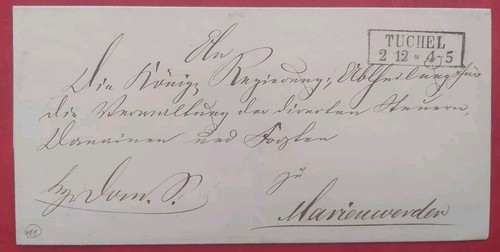 An
TUCHEL
2 12 * 4-5
Die König: Regierung; Abtheilung für
die Verwaltung der directen Steuern,
Domainen und Forsten
zu
Dom. S.
Marienwerder